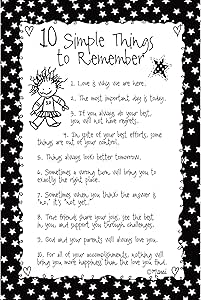 10 Simple Things
to Remember
1. Love is why we are here.
2. The most important day is today.
3. If you always do your best,
you will not have regrets.
4. In spite of your best efforts, some
things are out of your control.
5. Things always look better tomorrow.
6. Sometimes a wrong turn will bring you to
exactly the right place.
7. Sometimes when you think the answer is
"no", it's "not yet."
8. True friends share your joy, see the best
in you, and support you through challenges.
9. God and your parents will always love you.
10. For all of your accomplishments, nothing will
bring you more happiness than the love you find.